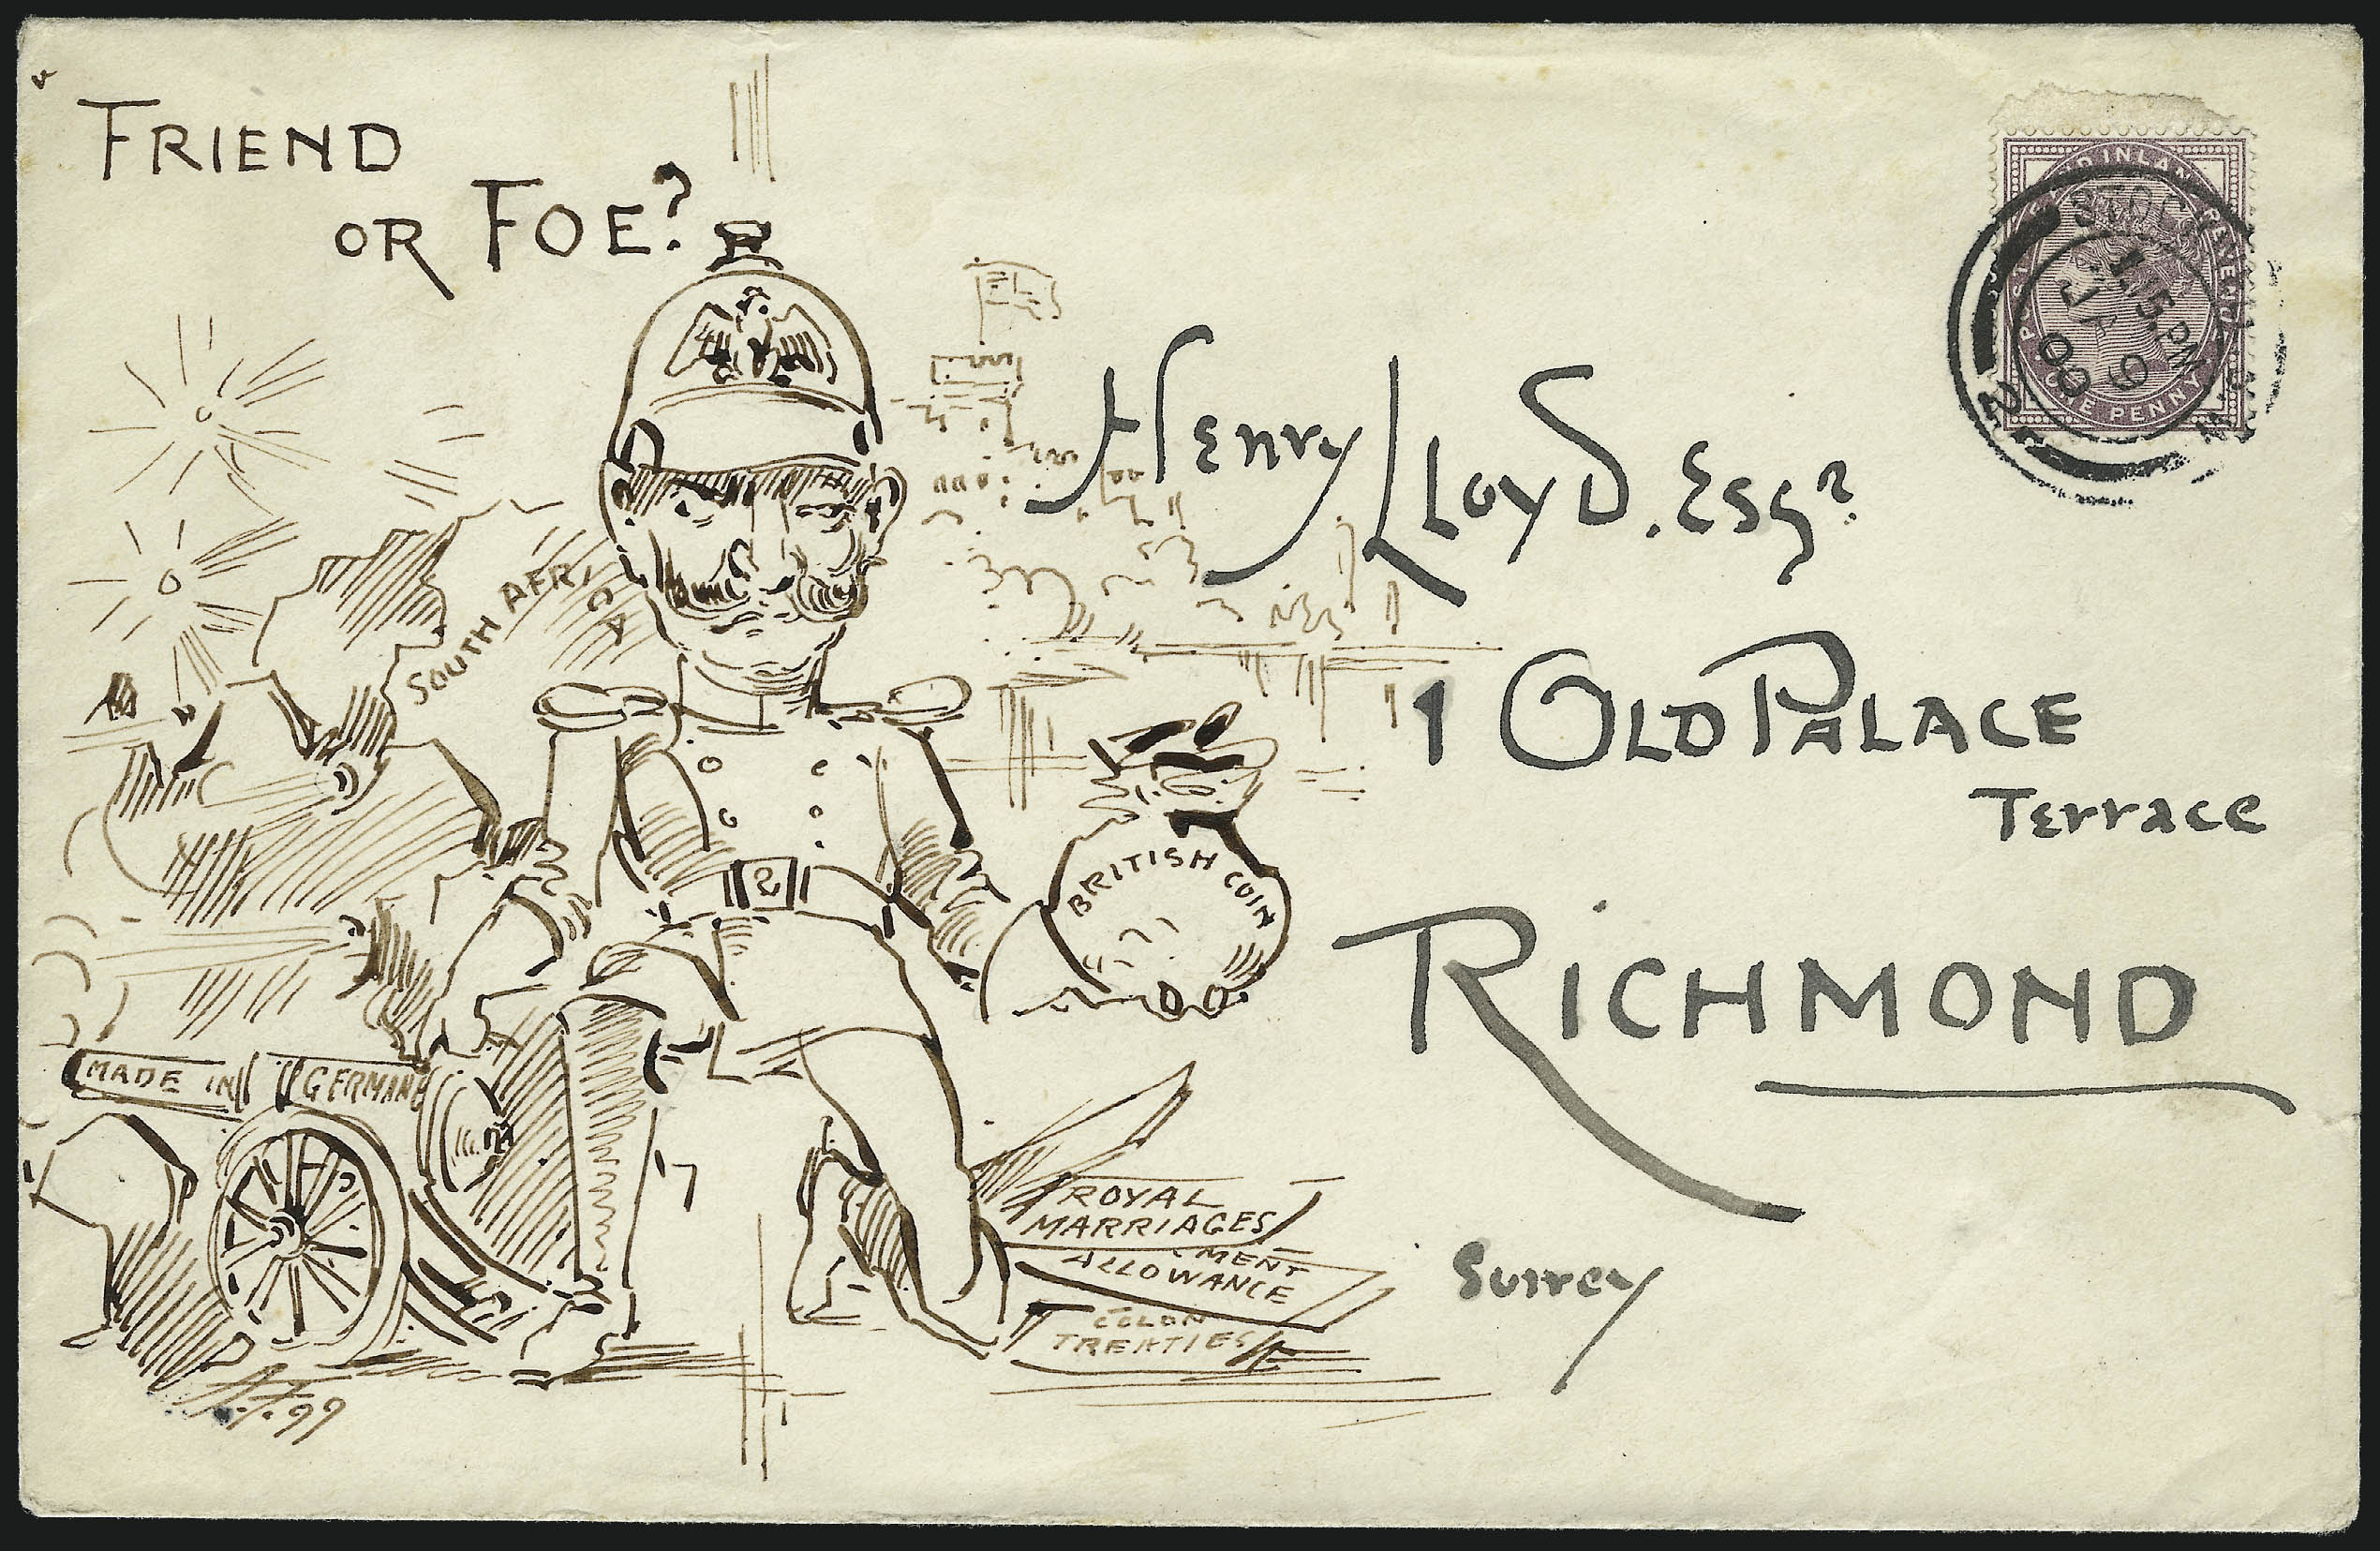 FRIEND
OR FOE?
SOUTH AFRICA
Henry Lloyd. Esqr
1 OLD PALACE
Terrace
RICHMOND
Surrey
BRITISH COIN
MADE IN GERMANY
ROYAL
MARRIAGES
MENT
ALLOWANCE
COLON
TREATIES
99
INLAND REVENUE
POST
ONE PENNY
1.15 PM
JA 9
00
2